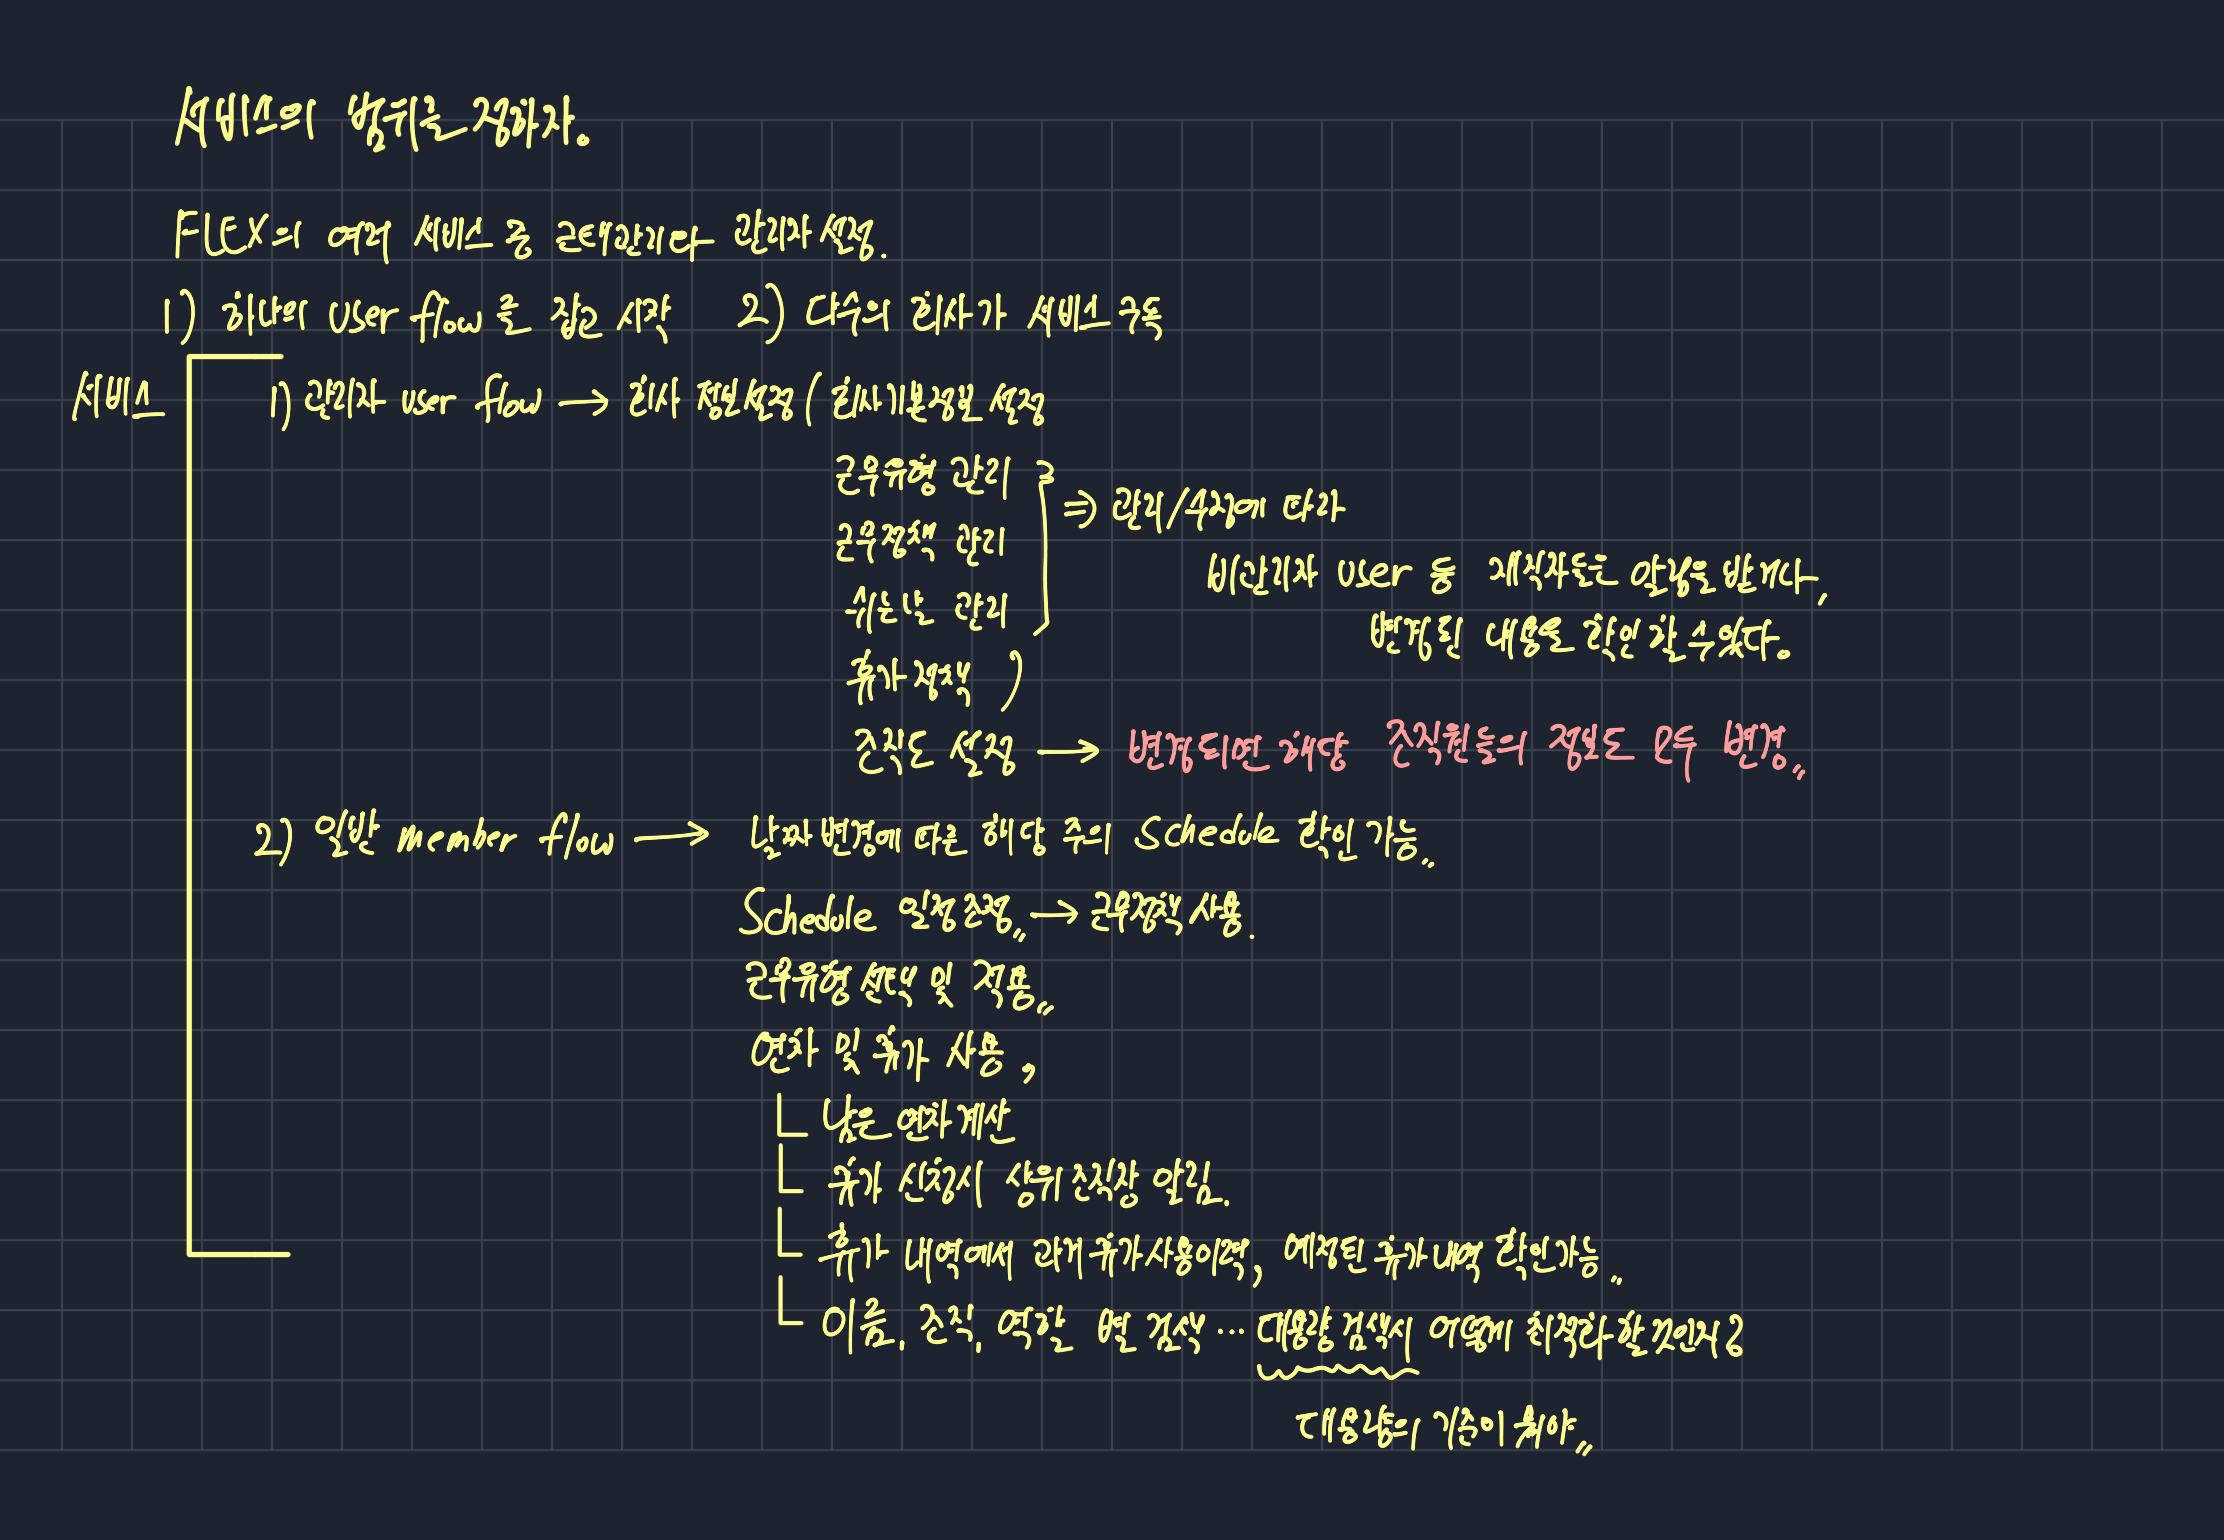 서비스의 범위를 정하자.
FLEX의 여러 서비스 중 근태관리와 관리자 설정.
1) 하나의 user flow를 잡고 시작 2) 다수의 회사가 서비스 구독
서비스
1) 관리자 user flow → 회사 정보설정 ( 회사기본정보 설정
근무유형 관리
⇒ 관리/수정에 따라
근무정책 관리
비관리자 user 등 재직자들은 알림을 받거나,
쉬는날 관리
변경된 내용을 확인 할 수 있다.
휴가정책 )
조직도 설정 → 변경되면 해당 조직원들의 정보도 모두 변경.,
2) 일반 member flow → 날짜변경에 따른 해당 주의 Schedule 확인 가능.,
Schedule 일정조정., → 근무정책 사용.
근무유형 선택 및 적용.,
연차 및 휴가 사용,
ㄴ 남은 연차계산
ㄴ 휴가 신청시 상위 조직장 알림.
ㄴ 휴가 내역에서 과거 휴가사용이력, 예정된 휴가내역 확인가능.,
ㄴ 이름, 조직, 역할 별 검색 ... 대용량 검색시 어떻게 최적화 할 것인지?
대용량의 기준이 뭐야.,